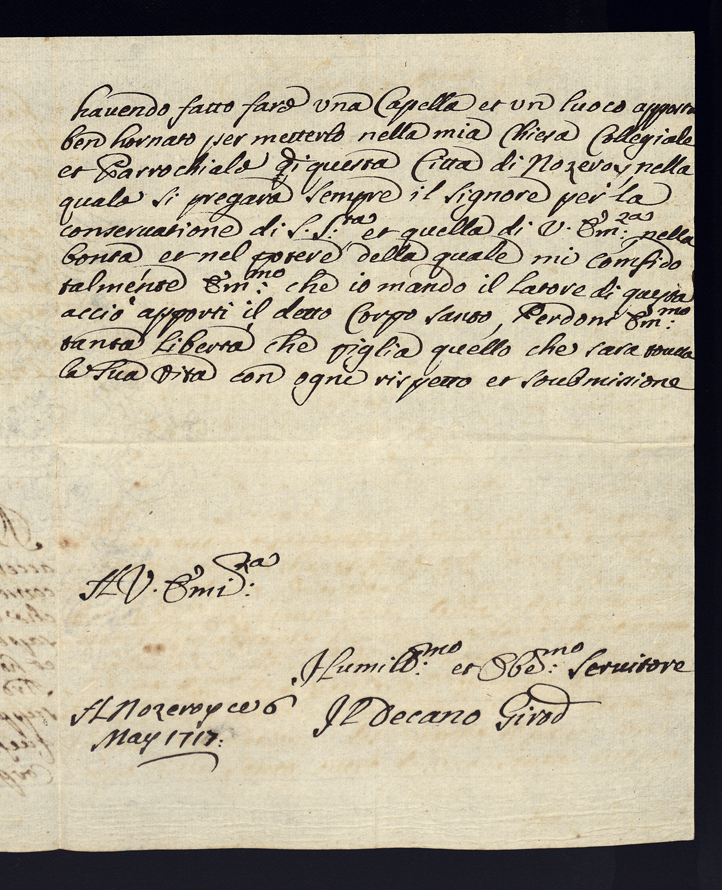 havendo fatto fare una Capella et un luoco apposta
ben hornato per metterlo nella mia Chiesa Collegiale
et Parrochiale di questa Citta di Nozeroy nella
quale si pregara sempre il Signore per la
conservatione di S. S.ta et quella di V. Em.za nella
bonta et nel potere della quale mi comfido
talmente Em.mo che io mando il Latore di questa
accio apporti il detto Corpo santo, Perdoni Em.mo
tanta Liberta che piglia quello che sara toutta
la Sua Vita con ogni rispetto et soubmisione
A V. Emi.za
Il umill.mo et Obe.mo Servitore
A Nozeroy ce 6
May 1717.
Il Decano Girod